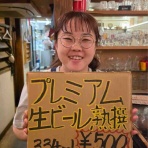 プレミアム
生ビール熟撰
334ml ¥500